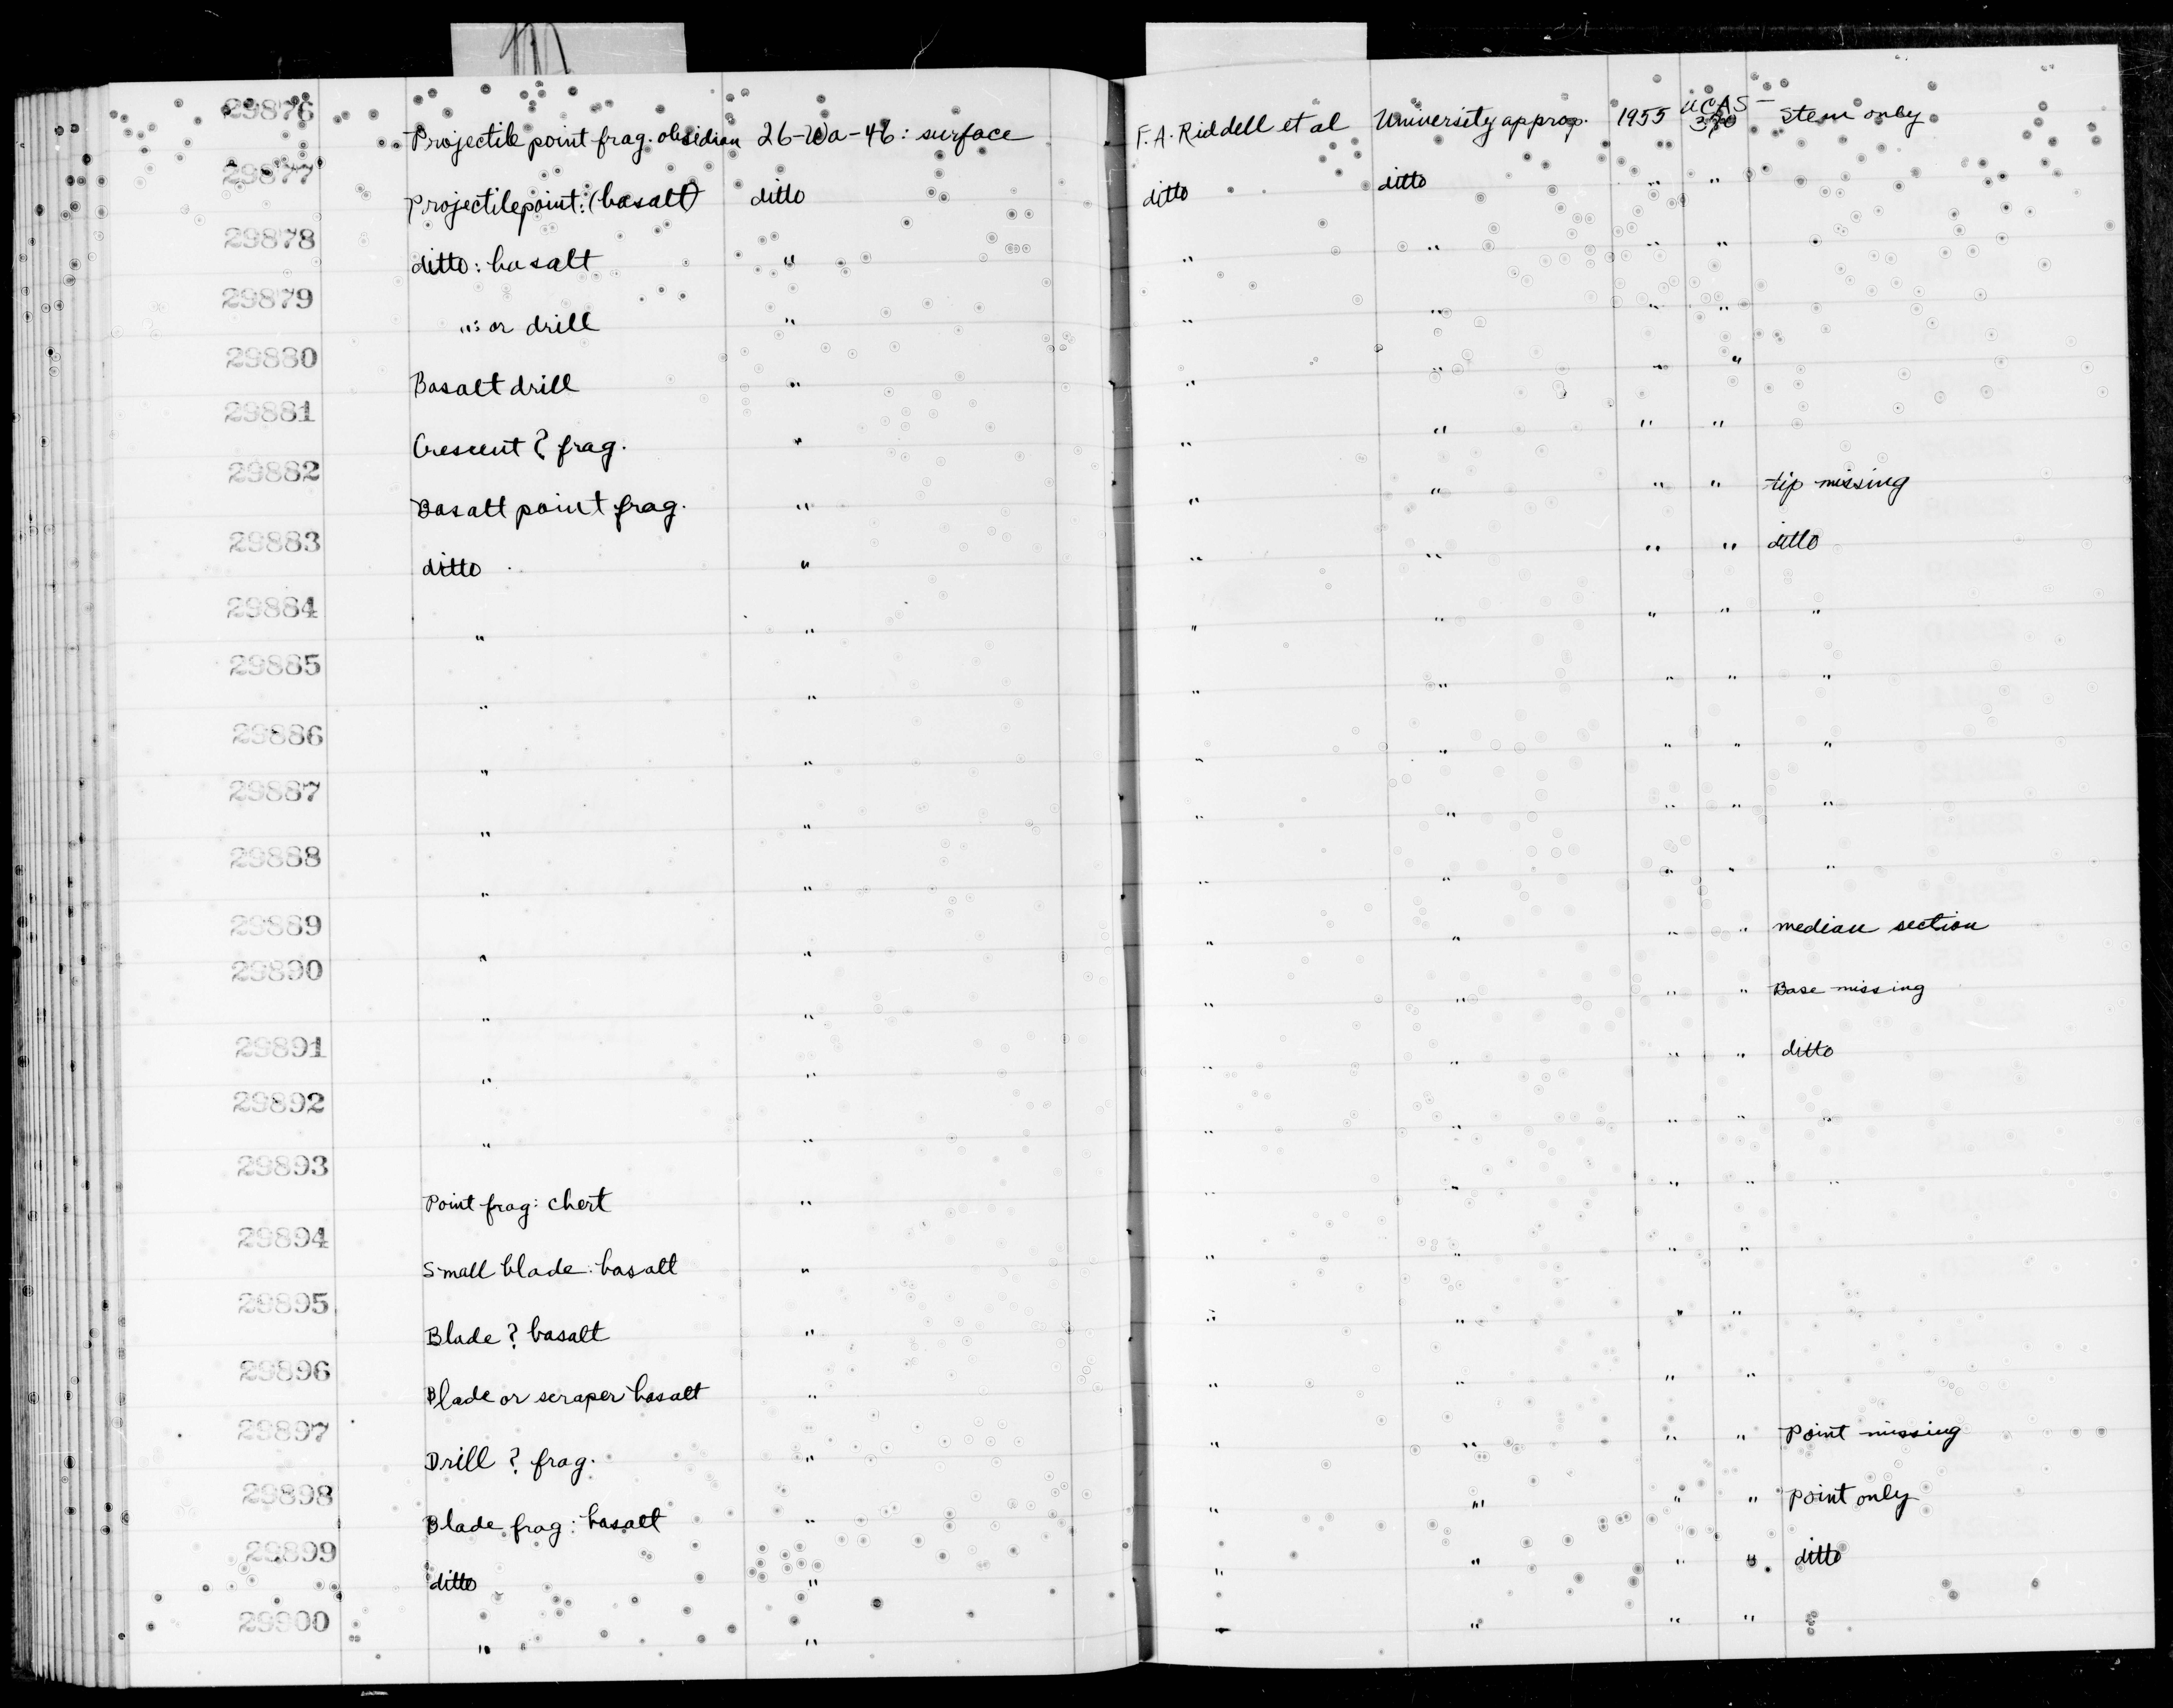 29876 Projectile point frag. obsidian 26-Wa-46: surface F. A. Riddell et al University approp. 1955 UCAS-370 Stem only
29877 Projectile point: (basalt) ditto ditto ditto " "
29878 ditto: basalt " " " " "
29879 ": or drill " " " " "
29880 Basalt drill " " " " "
29881 Crescent ? frag. " " " " "
29882 Basalt point frag. " " " " " tip missing
29883 ditto " " " " " ditto
29884 " " " " " " "
29885 " " " " " " "
29886 " " " " " " "
29887 " " " " " " "
29888 " " " " " " "
29889 " " " " " " median section
29890 " " " " " " Base missing
29891 " " " " " " ditto
29892 " " " " " " "
29893 Point frag: chert " " " " " "
29894 Small blade: basalt " " " " "
29895 Blade ? basalt " " " " "
29896 Blade or scraper basalt " " " " "
29897 Drill ? frag. " " " " " Point missing
29898 Blade frag: basalt " " " " " Point only
29899 ditto " " " " " ditto
29900 " " " " " "